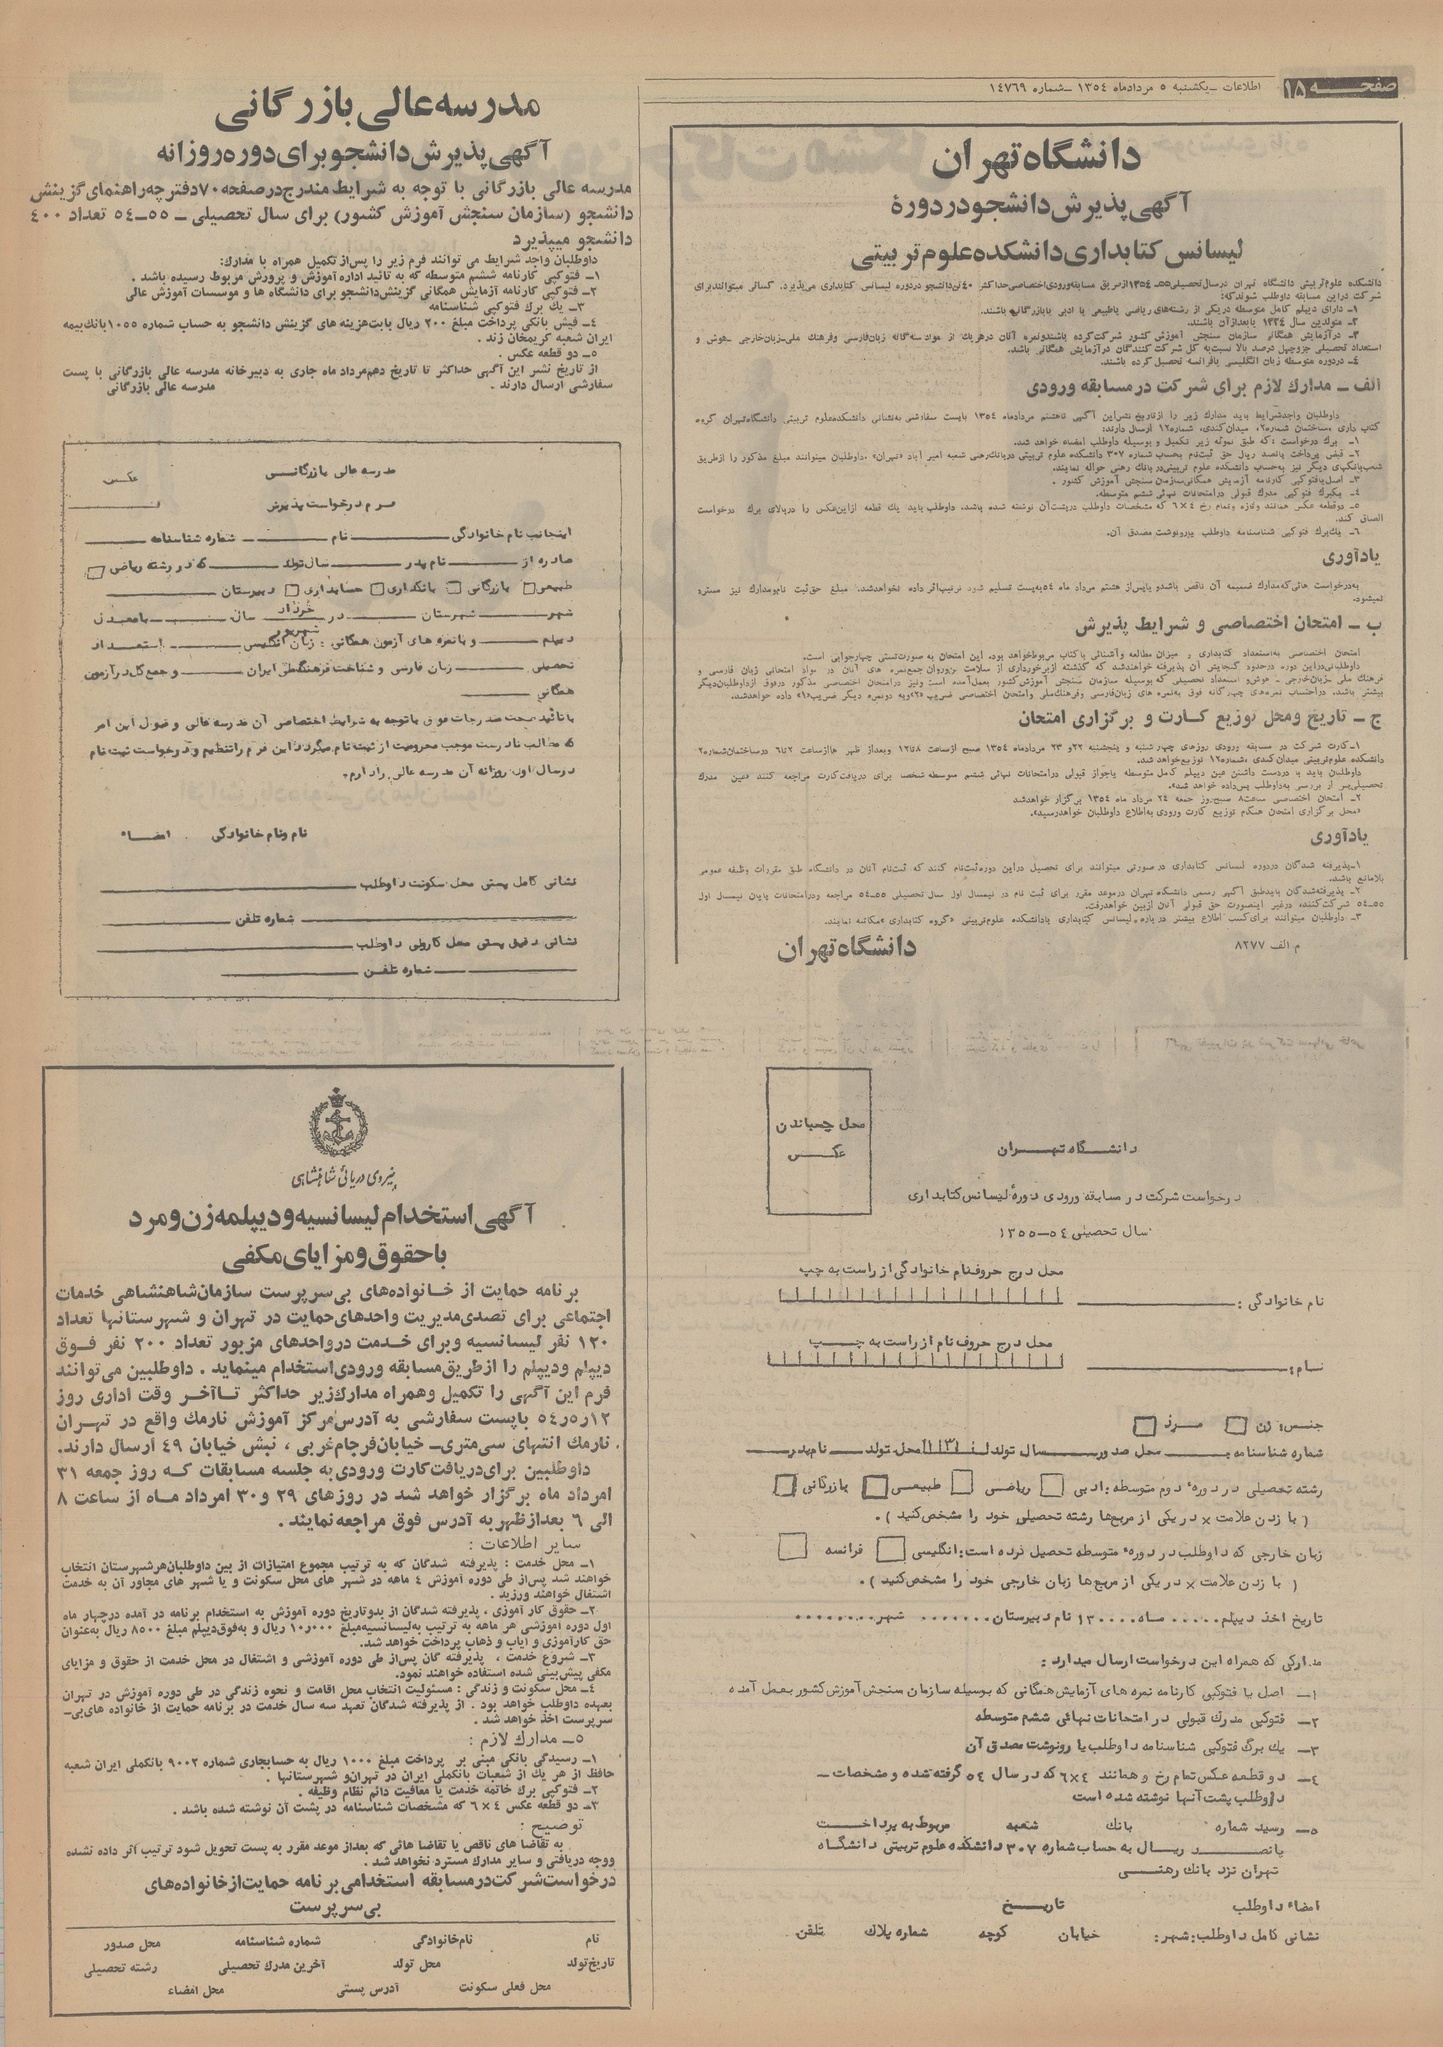 صفحه ۱۵
اطلاعات ـ یکشنبه ۵ مردادماه ۱۳۵۴ ـ شماره ۱۴۷۶۹
دانشگاه تهران
آگهی پذیرش دانشجو در دورهٔ
لیسانس کتابداری دانشکده علوم تربیتی
دانشکده علوم تربیتی دانشگاه تهران در سال تحصیلی ۵۵ـ۱۳۵۴ از طریق مسابقه ورودی اختصاصی حداکثر ۴۰ تن دانشجو در دوره لیسانس کتابداری می‌پذیرد. کسانی میتوانند برای
شرکت در این مسابقه داوطلب شوند که:
۱ـ دارای دیپلم کامل متوسطه در یکی از رشته‌های ریاضی یا طبیعی یا ادبی یا بازرگانی باشند.
۲ـ متولدین سال ۱۳۳۴ یا بعد از آن باشند.
۳ـ در آزمایش همگانی سازمان سنجش آموزش کشور شرکت کرده باشند و نمره آنان در هر یک از مواد سه‌گانه زبان فارسی و فرهنگ ملی ـ زبان خارجی ـ هوش و
استعداد تحصیلی جزو چهل درصد بالا نسبت به کل شرکت کنندگان در آزمایش همگانی باشد.
۴ـ در دوره متوسطه زبان انگلیسی یا فرانسه تحصیل کرده باشند.
الف ـ مدارك لازم برای شرکت در مسابقه ورودی
داوطلبان واجد شرایط باید مدارک زیر را از تاریخ نشر این آگهی تا هشتم مردادماه ۱۳۵۴ با پست سفارشی به نشانی دانشکده علوم تربیتی دانشگاه تهران گروه
کتاب داری ساختمان شماره ۲، میدان کندی، شماره ۱۲ ارسال دارند:
۱ـ برگ درخواست: که طبق نمونه زیر تکمیل و بوسیله داوطلب امضاء خواهد شد.
۲ـ قبض پرداخت پانصد ریال حق ثبت‌نام بحساب شماره ۳۰۷ دانشکده علوم تربیتی در بانک رهنی شعبه امیرآباد «تهران». داوطلبان میتوانند مبلغ مذکور را از طریق
شعب بانکهای دیگر نیز به حساب دانشکده علوم تربیتی در بانک رهنی حواله نمایند.
۳ـ اصل یا فتوکپی کارنامه آزمایش همگانی سازمان سنجش آموزش کشور.
۴ـ یکبرگ فتوکپی مدرک قبولی در امتحانات نهائی ششم متوسطه.
۵ـ دو قطعه عکس همانند و تازه و تمام رخ ۴×۶ که مشخصات داوطلب در پشت آن نوشته شده باشد. داوطلب باید یک قطعه از این عکس را در بالای برگ درخواست
الصاق کند.
۶ـ یکبرگ فتوکپی شناسنامه داوطلب یا رونوشت مصدق آن.
یادآوری
به درخواست هائی که مدارک ضمیمه آن ناقص باشد و یا پس از هشتم مرداد ماه ۵۴ به پست تسلیم شود ترتیب اثر داده نخواهد شد. مبلغ حق ثبت نام و مدارک نیز مسترد
نمیشود.
ب ـ امتحان اختصاصی و شرایط پذیرش
امتحان اختصاصی به استعداد کتابداری و میزان مطالعه و آشنائی با کتاب مربوط خواهد بود. این امتحان به صورت تستی چهارجوابی است.
داوطلبانی در این دوره در حدود گنجایش آن پذیرفته خواهند شد که گذشته از برخورداری از سلامت تن و روان جمع نمره های آنان در مواد امتحانی زبان فارسی و
فرهنگ ملی ـ زبان خارجی ـ هوش و استعداد تحصیلی که بوسیله سازمان سنجش آموزش کشور بعمل آمده است و نیز در امتحان اختصاصی مذکور در فوق از داوطلبان دیگر
بیشتر باشد. در احتساب نمره‌های چهارگانه فوق به نمره های زبان فارسی و فرهنگ ملی و امتحان اختصاصی ضریب «۲» و به دو نمره دیگر ضریب «۱» داده خواهد شد.
ج ـ تاریخ و محل توزیع کارت و برگزاری امتحان
۱ـ کارت شرکت در مسابقه ورودی روزهای چهارشنبه و پنجشنبه ۲۲ و ۲۳ مردادماه ۱۳۵۴ صبح از ساعت ۸ تا ۱۲ و بعد از ظهر ها از ساعت ۲ تا ۶ در ساختمان شماره ۲
دانشکده علوم تربیتی میدان کندی، شماره ۱۲ توزیع خواهد شد.
داوطلبان باید با در دست داشتن عین دیپلم کامل متوسطه یا جواز قبولی در امتحانات نهائی ششم متوسطه شخصاً برای دریافت کارت مراجعه کنند «عین مدرک
تحصیلی پس از بررسی به داوطلب پس داده خواهد شد».
۲ـ امتحان اختصاصی ساعت ۸ صبح روز جمعه ۲۴ مرداد ماه ۱۳۵۴ برگزار خواهد شد
«محل برگزاری امتحان هنگام توزیع کارت ورودی به اطلاع داوطلبان خواهد رسید».
یادآوری
۱ـ پذیرفته شدگان در دوره لیسانس کتابداری در صورتی میتوانند برای تحصیل در این دوره ثبت‌نام کنند که ثبت‌نام آنان در دانشگاه طبق مقررات وظیفه عمومی
بلامانع باشد.
۲ـ پذیرفته‌شدگان باید طبق آگهی رسمی دانشگاه تهران در موعد مقرر برای ثبت نام در نیمسال اول سال تحصیلی ۵۵ـ۵۴ مراجعه و در امتحانات پایان نیمسال اول
۵۵ـ۵۴ شرکت کنند، در غیر اینصورت حق قبولی آنان از بین خواهد رفت.
۳ـ داوطلبان میتوانند برای کسب اطلاع بیشتر درباره لیسانس کتابداری با دانشکده علوم تربیتی «گروه کتابداری» مکاتبه نمایند.
م الف ۸۲۷۷
دانشگاه تهران
محل چسباندن
عکس
دانشگاه تهران
درخواست شرکت در مسابقه ورودی دورهٔ لیسانس کتابداری
سال تحصیلی ۵۴ـ۱۳۵۵
محل درج حروف نام خانوادگی از راست به چپ
نام خانوادگی:
محل درج حروف نام از راست به چپ
نام:
جنس: زن مرد
شماره شناسنامه محل صدور سال تولد ۱۳ محل تولد نام پدر
رشته تحصیلی در دوره دوم متوسطه: ادبی ریاضی طبیعی بازرگانی
( با زدن علامت × در یکی از مربع‌ها رشته تحصیلی خود را مشخص کنید ).
زبان خارجی که داوطلب در دوره متوسطه تحصیل کرده است: انگلیسی فرانسه
( با زدن علامت × در یکی از مربع‌ها زبان خارجی خود را مشخص کنید ).
تاریخ اخذ دیپلم ...... ماه .... ۱۳۰۰ نام دبیرستان ........ شهر ........
مدارکی که همراه این درخواست ارسال میدارد:
۱ـ اصل یا فتوکپی کارنامه نمره های آزمایش همگانی که بوسیله سازمان سنجش آموزش کشور بعمل آمده
۲ـ فتوکپی مدرک قبولی در امتحانات نهائی ششم متوسطه
۳ـ یک برگ فتوکپی شناسنامه داوطلب یا رونوشت مصدق آن
۴ـ دو قطعه عکس تمام رخ و همانند ۴×۶ که در سال ۵۴ گرفته شده و مشخصات ـ
داوطلب پشت آنها نوشته شده است
۵ـ رسید شماره بانک شعبه مربوط به پرداخت
پانصد ریال به حساب شماره ۳۰۷ دانشکده علوم تربیتی دانشگاه
تهران نزد بانک رهنی
امضاء داوطلب تاریخ
نشانی کامل داوطلب: شهر: خیابان کوچه شماره پلاک تلفن
مدرسه عالی بازرگانی
آگهی پذیرش دانشجو برای دوره روزانه
مدرسه عالی بازرگانی با توجه به شرایط مندرج در صفحه ۷۰ دفترچه راهنمای گزینش
دانشجو (سازمان سنجش آموزش کشور) برای سال تحصیلی ـ ۵۵ـ۵۴ تعداد ۴۰۰
دانشجو میپذیرد
داوطلبان واجد شرایط می توانند فرم زیر را پس از تکمیل همراه با مدارك:
۱ـ فتوکپی کارنامه ششم متوسطه که به تائید اداره آموزش و پرورش مربوط رسیده باشد .
۲ـ فتوکپی کارنامه آزمایش همگانی گزینش دانشجو برای دانشگاه ها و موسسات آموزش عالی
۳ـ یك برك فتوکپی شناسنامه
۴ـ فیش بانکی پرداخت مبلغ ۲۰۰ ریال بابت هزینه های گزینش دانشجو به حساب شماره ۱۰۵۵ بانك بیمه
ایران شعبه کریمخان زند .
۵ـ دو قطعه عکس .
از تاریخ نشر این آگهی حداکثر تا تاریخ دهم مرداد ماه جاری به دبیرخانه مدرسه عالی بازرگانی با پست
سفارشی ارسال دارند . مدرسه عالی بازرگانی
مدرسه عالی بازرگانی
عکس
فرم درخواست پذیرش
اینجانب نام خانوادگی نام شماره شناسنامه
صادره از نام پدر سال تولد که در رشته ریاضی
طبیعی بازرگانی بانکداری حسابداری دبیرستان
شهر شهرستان در خرداد شهریور سال با معدل
دیپلم و با نمره های آزمون همگانی: زبان انگلیسی استعداد
تحصیلی زبان فارسی و شناخت فرهنگ ملی ایران و جمع کل در آزمون
همگانی
با تائید صحت مندرجات فوق با توجه به شرایط اختصاصی آن مدرسه عالی و قبول این امر
که مطالب نادرست موجب محرومیت از ثبت نام میگردد این فرم را تنظیم و درخواست ثبت نام
در سال اول روزانه آن مدرسه عالی را دارم.
نام و نام خانوادگی امضاء
نشانی کامل پستی محل سکونت داوطلب
شماره تلفن
نشانی دقیق پستی محل کار ولی داوطلب
شماره تلفن
نیروی دریائی شاهنشاهی
آگهی استخدام لیسانسیه و دیپلمه زن و مرد
با حقوق و مزایای مکفی
برنامه حمایت از خانواده‌های بی‌سرپرست سازمان شاهنشاهی خدمات
اجتماعی برای تصدی مدیریت واحدهای حمایت در تهران و شهرستانها تعداد
۱۲۰ نفر لیسانسیه و برای خدمت در واحدهای مزبور تعداد ۲۰۰ نفر فوق
دیپلم و دیپلم را از طریق مسابقه ورودی استخدام مینماید . داوطلبین می‌توانند
فرم این آگهی را تکمیل و همراه مدارك زیر حداکثر تا آخر وقت اداری روز
۱۲ر۵ر۵۴ با پست سفارشی به آدرس مرکز آموزش نارمك واقع در تهران
نارمك انتهای سی‌متری ـ خیابان فرجام غربی ، نبش خیابان ۴۹ ارسال دارند.
داوطلبین برای دریافت کارت ورودی به جلسه مسابقات که روز جمعه ۳۱
امرداد ماه برگزار خواهد شد در روزهای ۲۹ و ۳۰ امرداد ماه از ساعت ۸
الی ۶ بعد از ظهر به آدرس فوق مراجعه نمایند .
سایر اطلاعات :
۱ـ محل خدمت : پذیرفته شدگان که به ترتیب مجموع امتیازات از بین داوطلبان هر شهرستان انتخاب
خواهند شد پس از طی دوره آموزش ۴ ماهه در شهر های محل سکونت و یا شهر های مجاور آن به خدمت
اشتغال خواهند ورزید .
۲ـ حقوق کار آموزی . پذیرفته شدگان از بدو تاریخ دوره آموزش به استخدام برنامه در آمده در چهار ماه
اول دوره آموزشی هر ماهه به ترتیب به لیسانسیه مبلغ ۱۰ر۰۰۰ ریال و به فوق دیپلم مبلغ ۸۵۰۰ ریال به عنوان
حق کارآموزی و ایاب و ذهاب پرداخت خواهد شد.
۳ـ شروع خدمت ، پذیرفته گان پس از طی دوره آموزشی و اشتغال در محل خدمت از حقوق و مزایای
مکفی پیش‌بینی شده استفاده خواهند نمود.
۴ـ محل سکونت و زندگی : مسئولیت انتخاب محل اقامت و نحوه زندگی در طی دوره آموزش در تهران
بعهده داوطلب خواهد بود . از پذیرفته شدگان تعهد سه سال خدمت در برنامه حمایت از خانواده های بی‌ـ
سرپرست اخذ خواهد شد .
۵ـ مدارك لازم :
۱ـ رسیدگی بانکی مبنی بر پرداخت مبلغ ۱۰۰۰ ریال به حسابجاری شماره ۹۰۰۲ بانك ملی ایران شعبه
حافظ از هر یك از شعبات بانك ملی ایران در تهران و شهرستانها .
۲ـ فتوکپی برك خاتمه خدمت یا معافیت دائم نظام وظیفه .
۳ـ دو قطعه عکس ۴×۶ که مشخصات شناسنامه در پشت آن نوشته شده باشد .
توضیح :
به تقاضا های ناقص یا تقاضا هائی که بعد از موعد مقرر به پست تحویل شود ترتیب اثر داده نشده
و وجه دریافتی و سایر مدارك مسترد نخواهد شد .
درخواست شرکت در مسابقه استخدامی برنامه حمایت از خانواده‌های
بی سرپرست
نام نام خانوادگی شماره شناسنامه محل صدور
تاریخ تولد محل تولد آخرین مدرك تحصیلی رشته تحصیلی
محل فعلی سکونت آدرس پستی محل امضاء